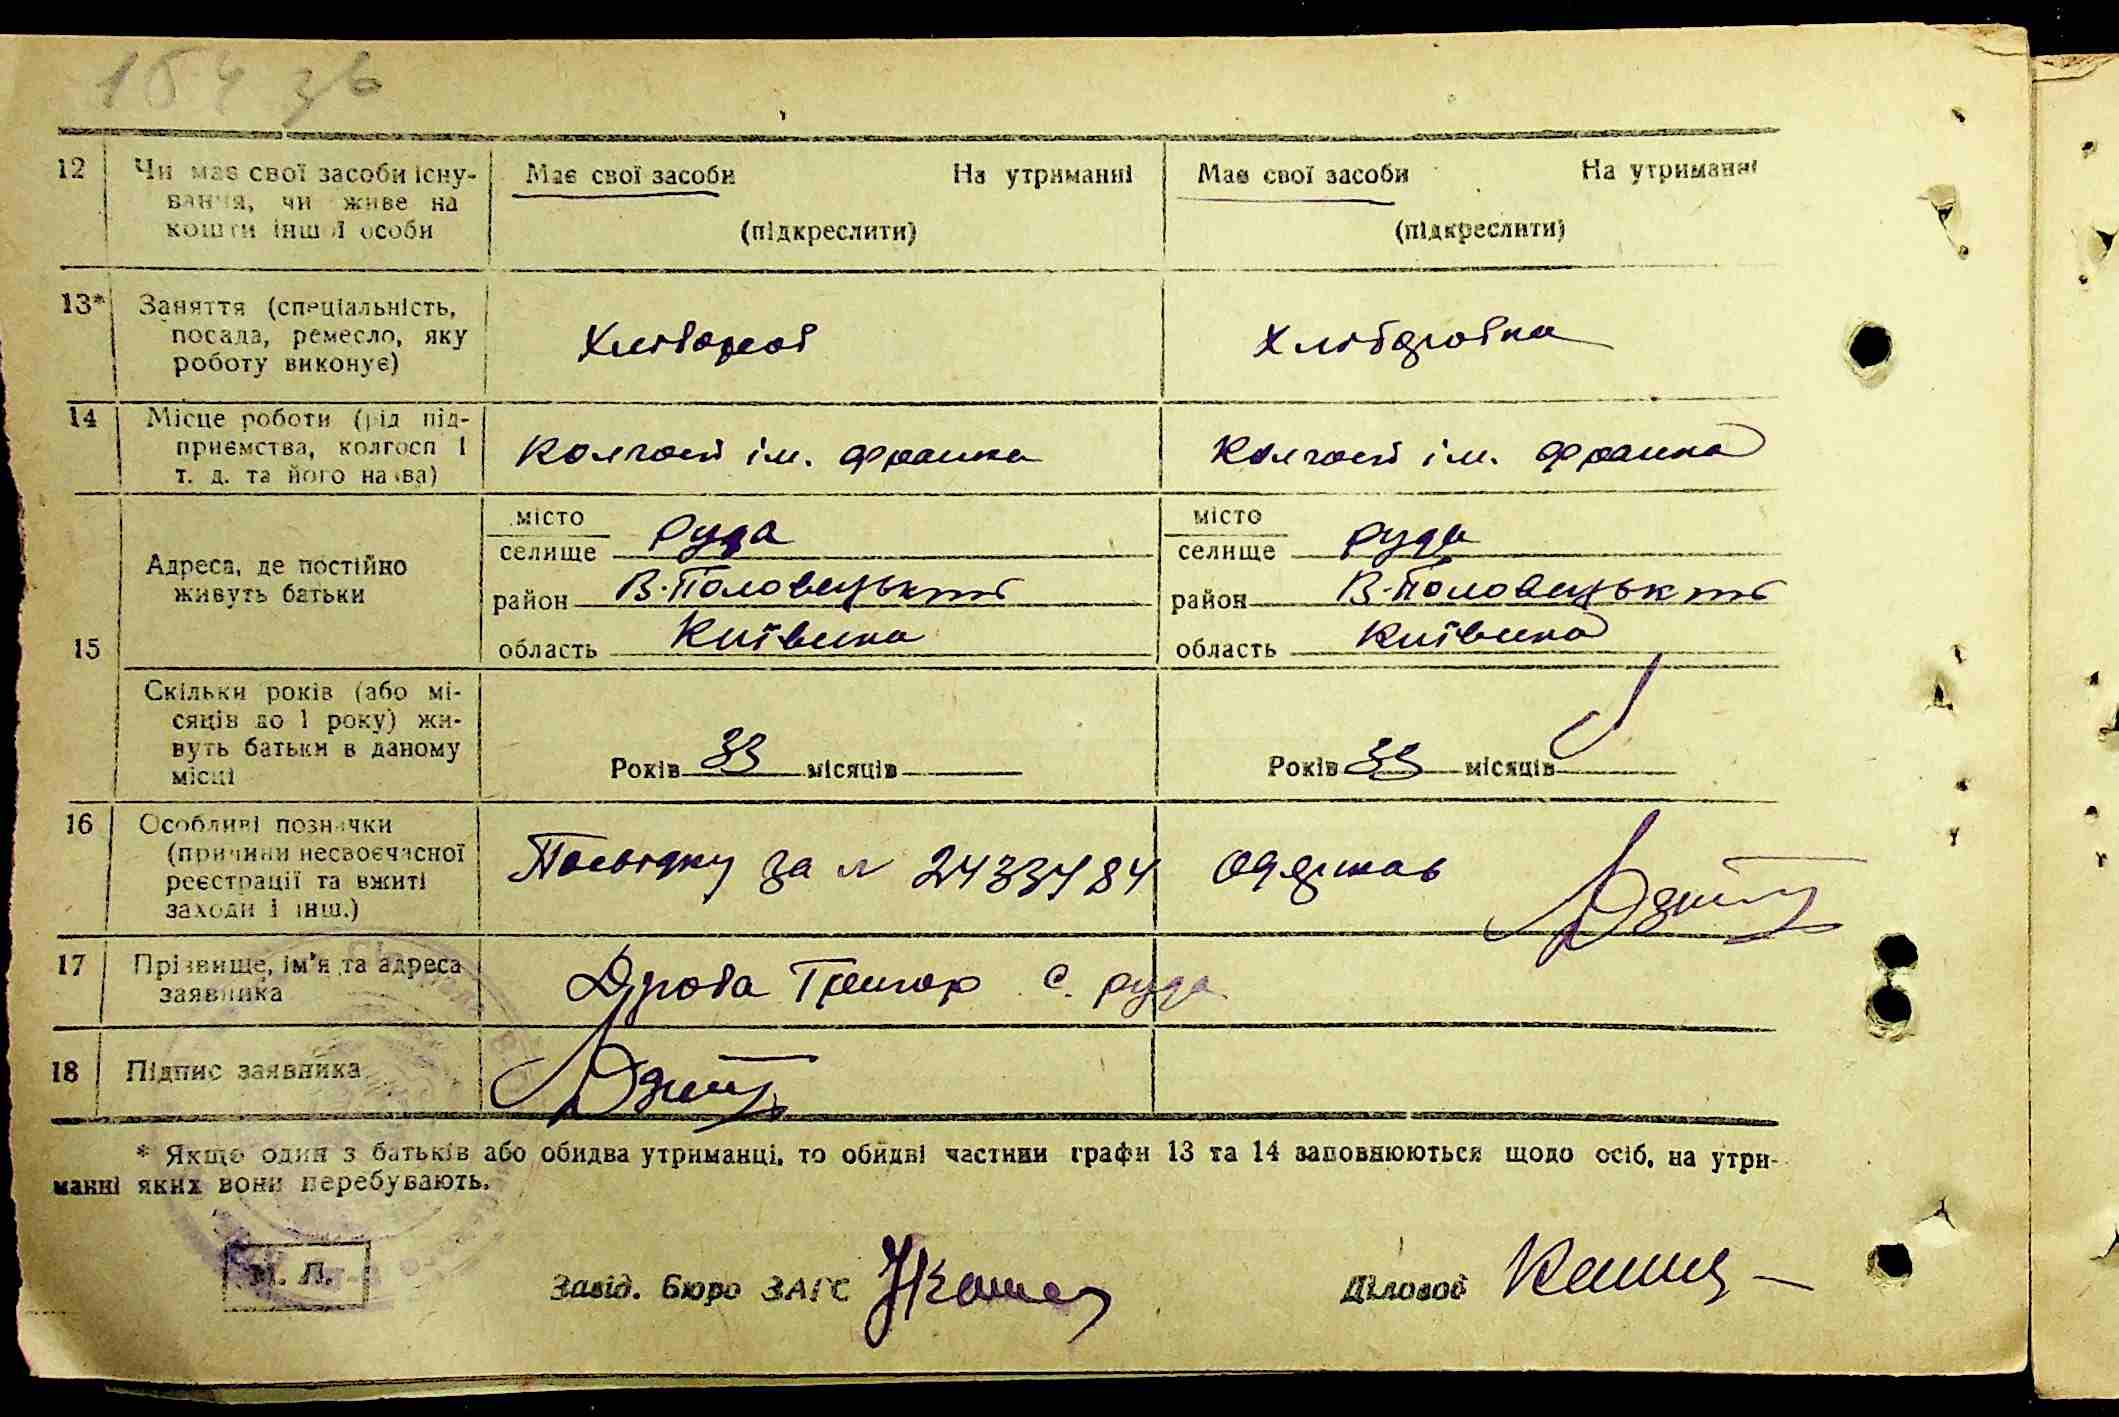 154 зв
12 Чи має свої засоби існу- Має свої засоби На утриманні Має свої засоби На утриманні
вання, чи живе на
кошти іншої особи (підкреслити) (підкреслити)
13* Заняття (спеціальність,
посада, ремесло, яку Хлібороб Хліборобка
роботу виконує)
14 Місце роботи (рід під-
приємства, колгосп і Колгосп ім. Франка Колгосп ім. Франка
т. д. та його назва)
місто місто
селище Руда селище Руда
15 Адреса, де постійно
живуть батьки район В-Половецький район В-Половецький
область Київська область Київська
Скільки років (або мі-
сяців до 1 року) жи-
вуть батьки в даному Років 33 місяців Років 33 місяців
місці
16 Особливі позначки
(причини несвоєчасної Посвідку за № 2433484 одержав
реєстрації та вжиті
заходи і інш.)
17 Прізвище, ім'я та адреса Дроба Григор с. Руда
заявника
18 Підпис заявника
* Якщо один з батьків або обидва утриманці, то обидві частини графи 13 та 14 заповнюються щодо осіб, на утри-
манні яких вони перебувають.
М. П. Завід. Бюро ЗАГС Діловод